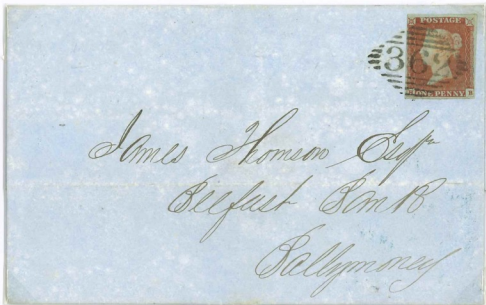 POSTAGE
ONE PENNY
James Thomson Esqr
Belfast Bank
Ballymoney